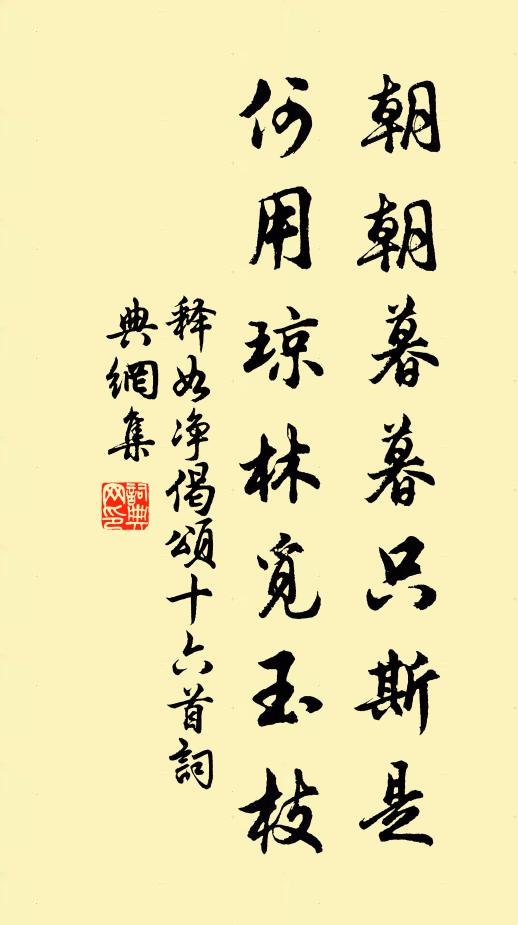 朝朝暮暮只斯是
何用琼林觅玉枝
释如净偈頌十六首詞
典網集
詞典網印